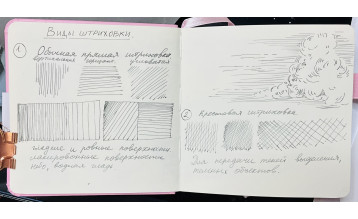 Виды штриховки.
1 Обычная прямая штриховка
вертикальная горизонт. наклонная
гладкие и ровные поверхности
лакированные поверхности
небо, водная гладь
2 Крестовая штриховка.
Для передачи теней
объектов.